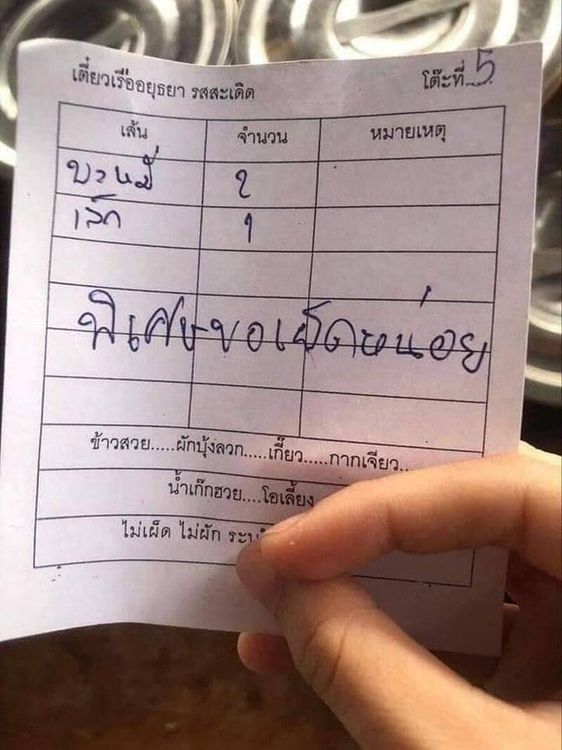 เตี๋ยวเรืออยุธยา รสสะเดิด โต๊ะที่ 5
เส้น จำนวน หมายเหตุ
บะหมี่ 2
เล็ก 1
พิเศษขอเผ็ดหน่อย
ข้าวสวย.....ผักบุ้งลวก.....เกี๊ยว.....กากเจียว..
น้ำเก๊กฮวย....โอเลี้ยง
ไม่เผ็ด ไม่ผัก